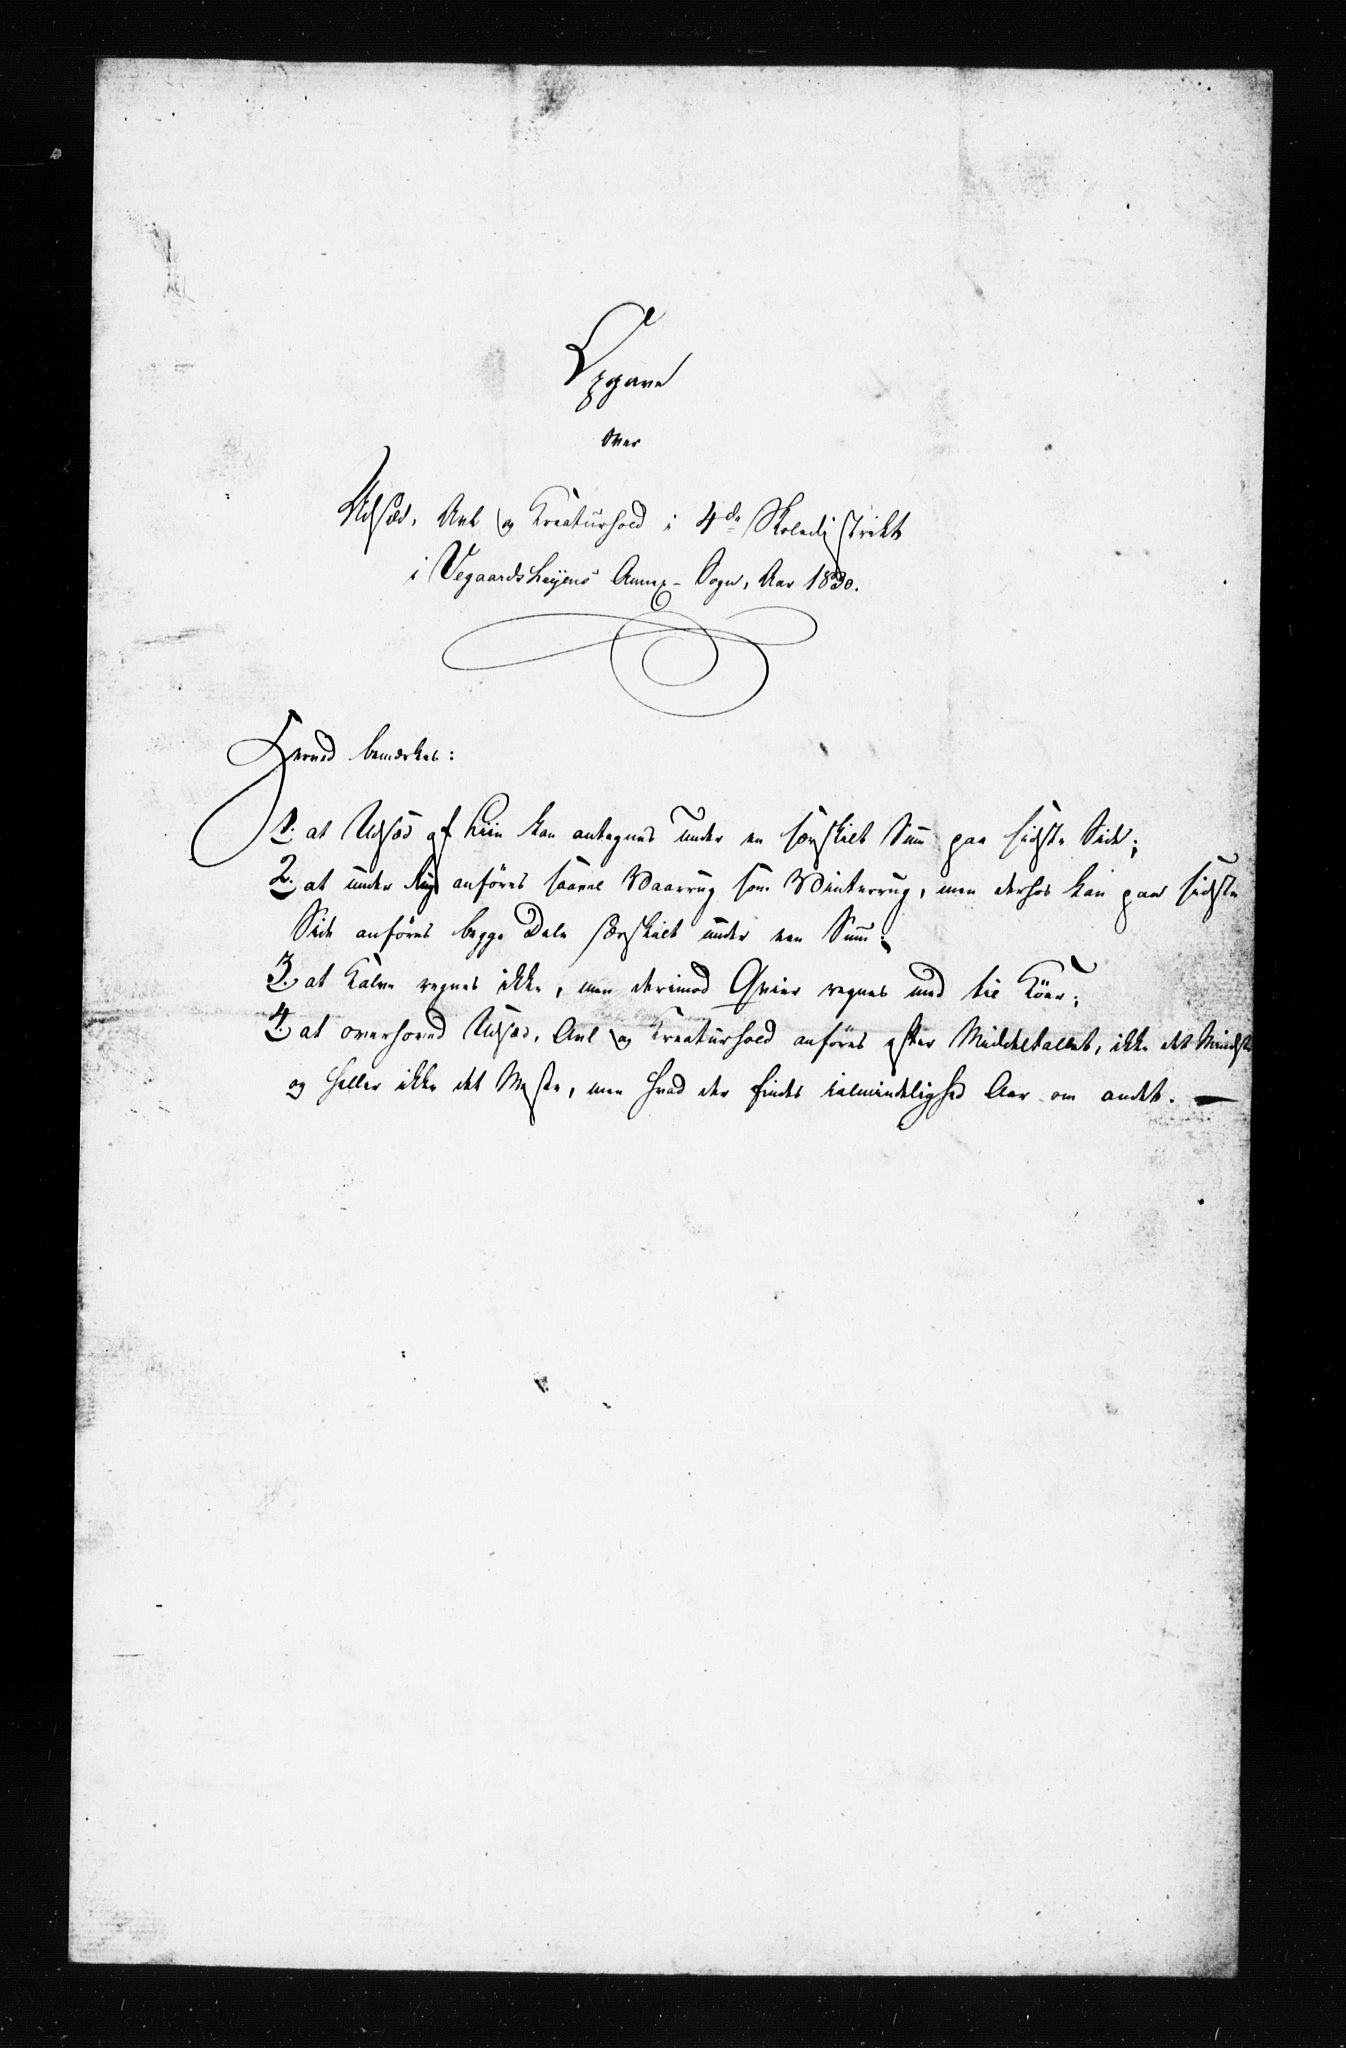 Opgave
over
Udsæd, Avl og Kreaturhold i 4de Skoledistrikt
i Vegaardsheyens Annex-Sogn, Aar 1830.
Herved bemærkes:
1. at Udsæd af Liin kan antegnes under en særskilt Sum paa sidste Side;
2. at under Rug anföres saavel Vaarrug som Vinterrug, men derhos kan paa sidste
Side anföres begge Dele særskilt under een Sum;
3. at Kalve regnes ikke, men derimod Qvier regnes med til Köer;
4. at overhoved Udsæd, Avl og Kreaturhold anföres efter Middeltallet, ikke det Mindste
og heller ikke det Meste, men hvad der findes ialmindelighed Aar om andet. —